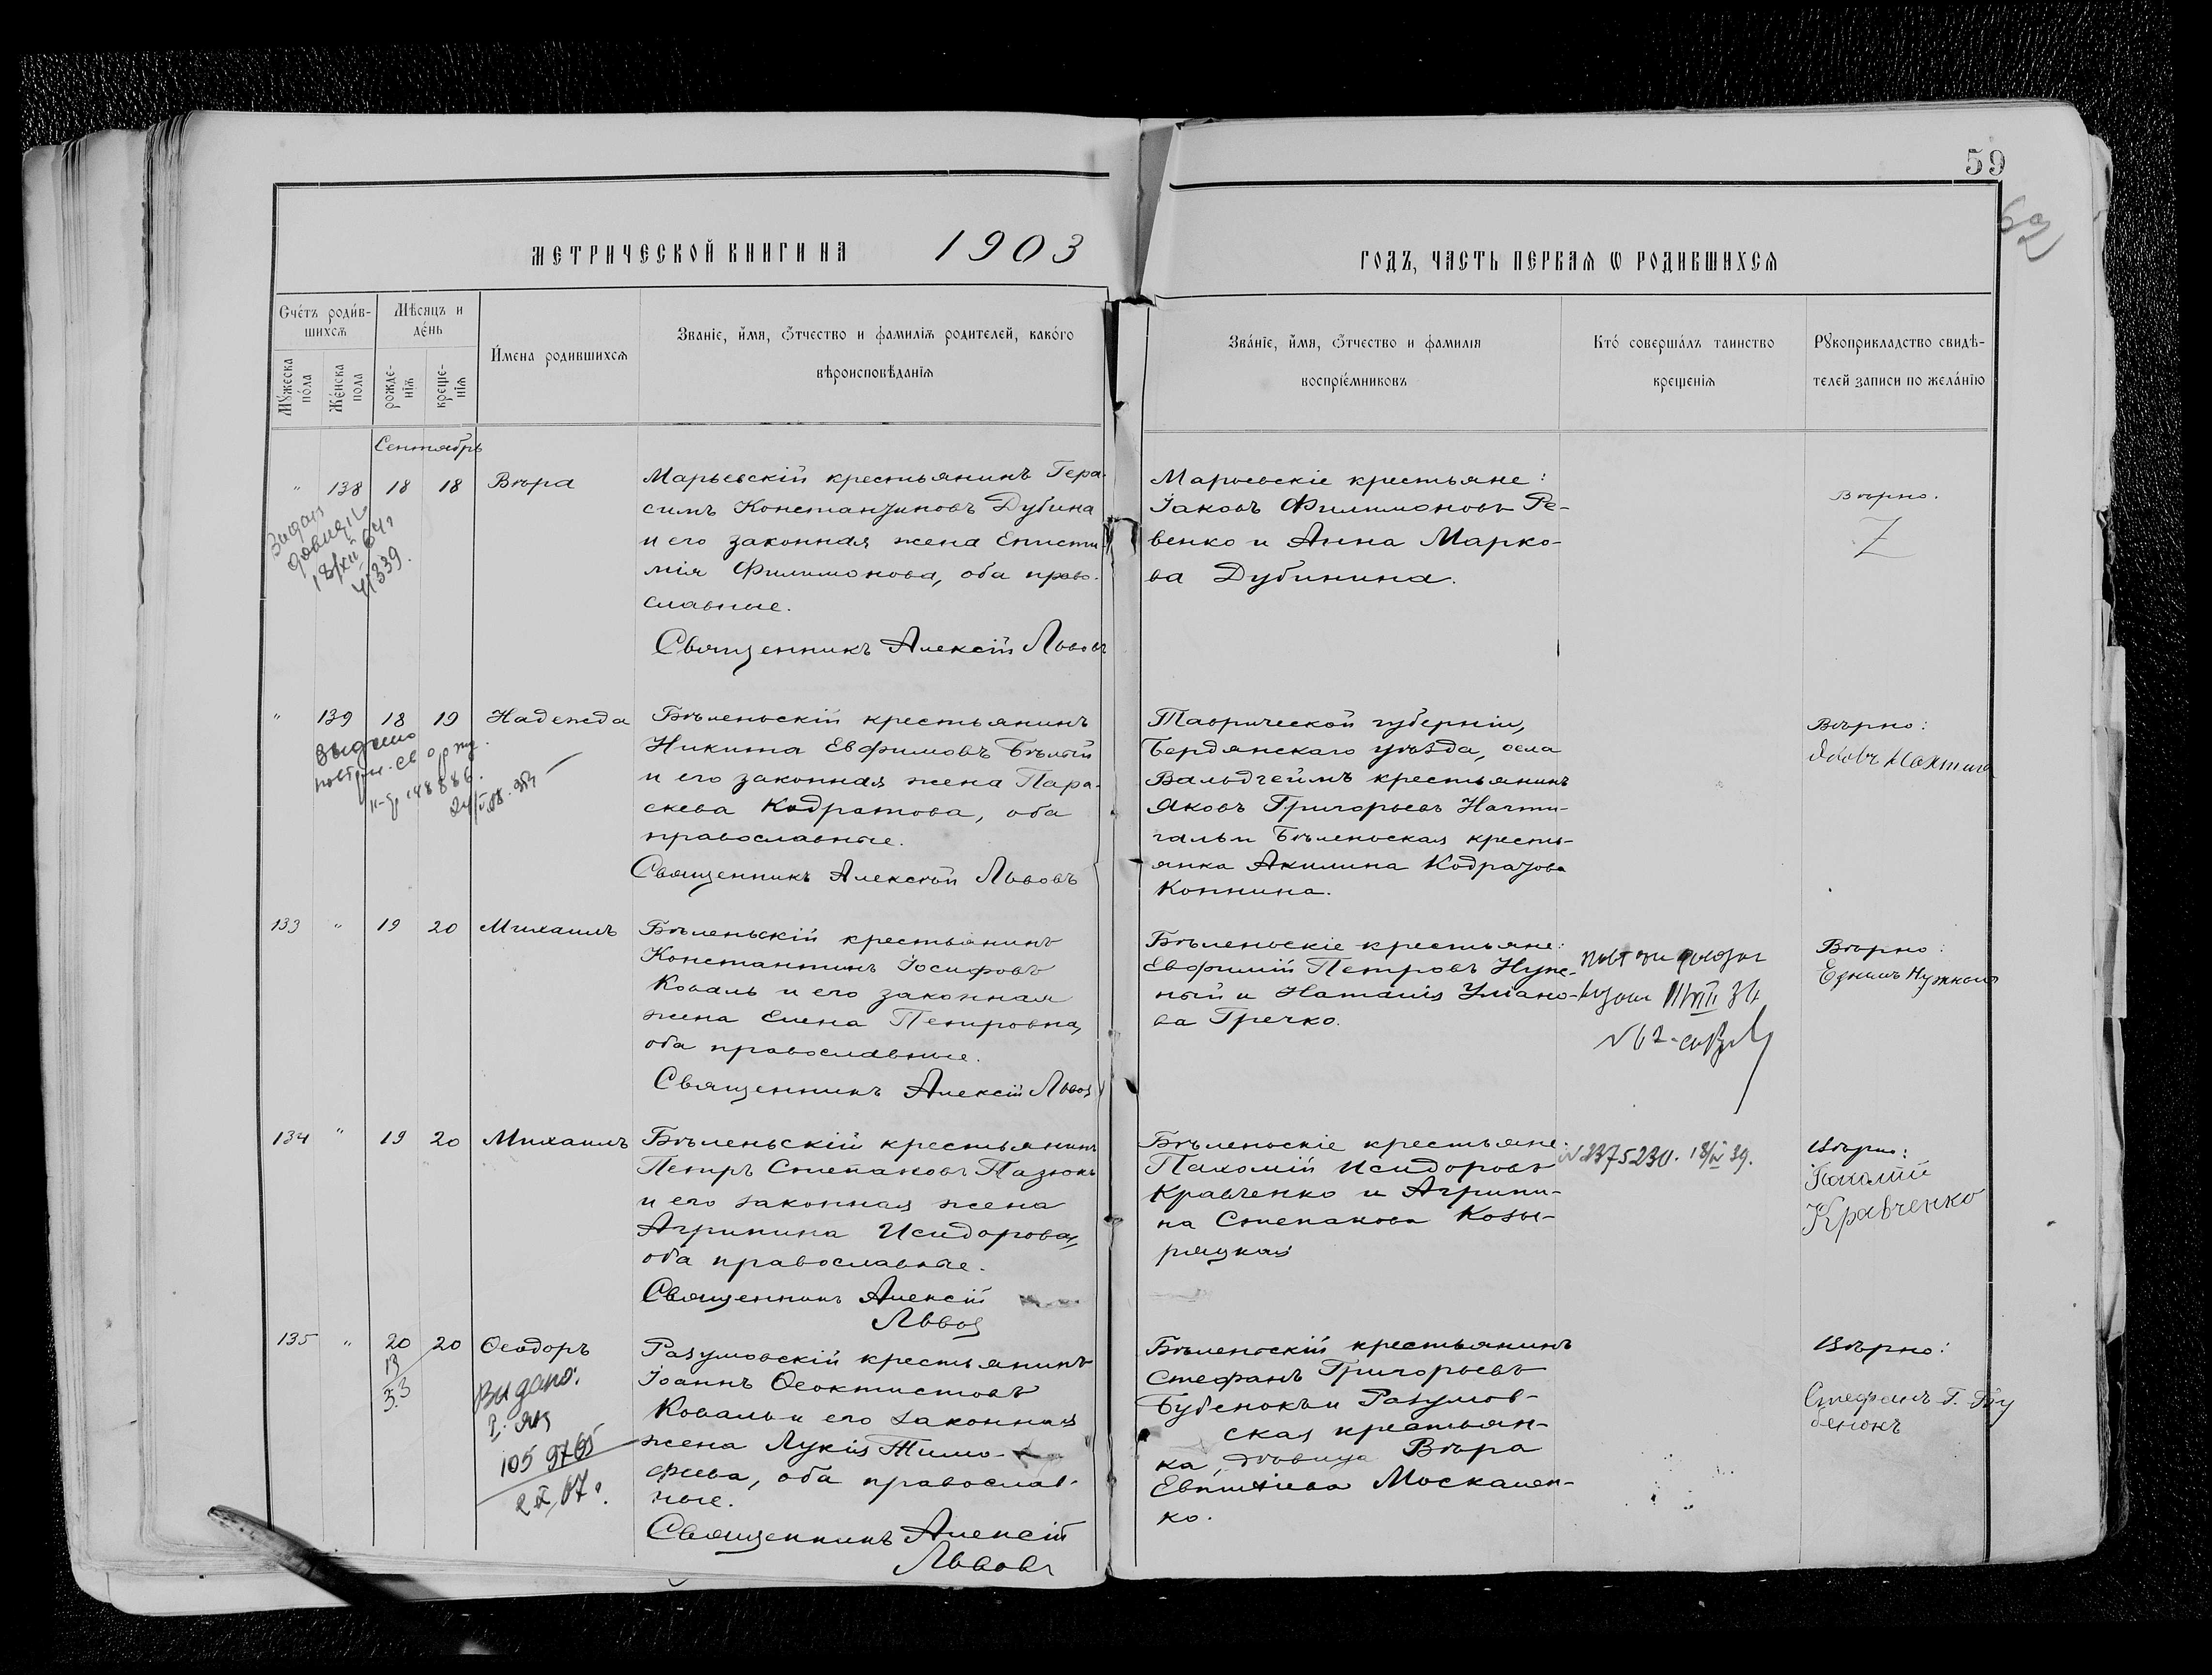 59
МЕТРИЧЕСКОЙ КНИГИ НА 1903
ГОДЪ, ЧАСТЬ ПЕРВАЯ Ѡ РОДИВШИХСЯ
Счетъ родив-
шихся
Мужеска пола
Женска пола
Мѣсяцъ и
день
рожде-
нія
креще-
нія
Имена родившихся
Званіе, имя, отчество и фамилія родителей, какого
вѣроисповѣданія
Званіе, имя, отчество и фамилія
воспріемниковъ
Кто совершалъ таинство
крещенія
Рукоприкладство свидѣ-
телей записи по желанію
Сентябрь
" 138 18 18 Вѣра
Марьевскій крестьянинъ Гера-
симъ Константиновъ Дубина
и его законная жена Еписти-
мія Филимонова, оба право-
славные.
Священникъ Алексій Львовъ
Марьевскіе крестьяне:
Іаковъ Филимоновъ Ре-
венко и Анна Марко-
ва Дубинина.
Вѣрно.
" 139 18 19 Надежда
Бѣленьскій крестьянинъ
Никита Евфимовъ Бѣлый
и его законная жена Пара-
скева Кодратова, оба
православные.
Священникъ Алексѣй Львовъ
Таврической губерніи,
Бердянскаго уѣзда, села
Вальдгеймъ крестьянинъ
Яковъ Григорьевъ Нахти-
галь и Бѣленьская кресть-
янка Акилина Кодратова
Коннина.
Вѣрно:
133 " 19 20 Михаилъ
Бѣленьскій крестьянинъ
Константинъ Іосифовъ
Коваль и его законная
жена Елена Петровна,
оба православные.
Священникъ Алексій Львовъ
Бѣленьскіе крестьяне:
Евфимій Петровъ Нуж-
ный и Наталія Улiано-
ва Гречко.
Вѣрно:
134 " 19 20 Михаилъ
Бѣленьскій крестьянинъ
Петръ Степановъ Пазюкъ
и его законная жена
Агрипина Исидорова,
оба православные.
Священникъ Алексій
Львовъ
Бѣленьскіе крестьяне:
Пахомій Исидоровъ
Кравченко и Агрипи-
на Степанова Козы-
ряцкая
Вѣрно:
Пахомій
Кравченко
135 " 20 20 Ѳеодоръ
Видано:
Разумовскій крестьянинъ
Іоаннъ Ѳеоктистовъ
Коваль и его законная
жена Лукія Тимо-
феева, оба православ-
ные.
Священникъ Алексій
Львовъ
Бѣленьскій крестьянинъ
Стефанъ Григорьевъ
Бубенокъ и Разумов-
ская крестьян-
ка, дѣвица Вѣра
Москален-
ко.
Вѣрно:
Стефанъ Г. Бу
бенокъ